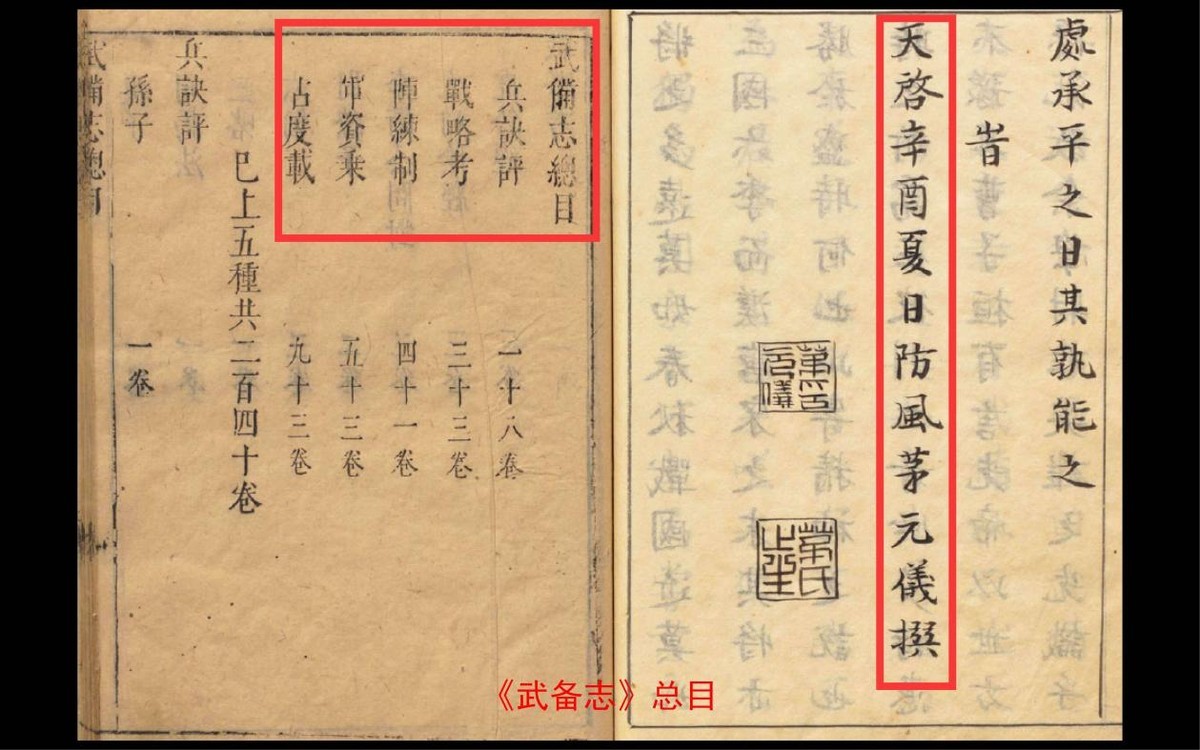 處承平之日其孰能之
旹
天啓辛酉夏日防風茅元儀撰
茅印元儀
茅氏止生
武備志總目
兵訣評 一十八卷
戰略考 三十三卷
陣練制 四十一卷
軍資乗 五十三卷
占度載 九十三卷
巳上五種共二百四十卷
兵訣評
孫子 一卷
武備志總目
《武备志》总目